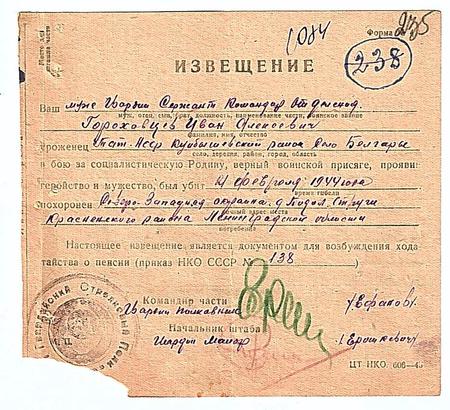 1084
Форма
235
238
Место для
штампа части
ИЗВЕЩЕНИЕ
Ваш муж Гвардии Сержант Командир отделения
муж, отец, сын, брат, должность, наименование части, воинское звание
Гороховцев Иван Алексеевич
фамилия, имя, отчество
уроженец Тат. Асср Куйбышевский район Село Болгары
село, деревня, район, город, область
в бою за социалистическую Родину, верный воинской присяге, проявив
геройство и мужество, был убит 4 февраля 1944 года
время гибели
похоронен Северо-Западная окраина д.
Ленинградской области
погребения
Настоящее извещение является документом для возбуждения хода
тайства о пенсии (приказ НКО СССР № 138
Командир части
Гвардии полковник
Начальник штаба
Гвардии Майор
/Ефапов/
/Ерошкевич/
Гвардейский Стрелковый Полк
ЦТ НКО. 606—43